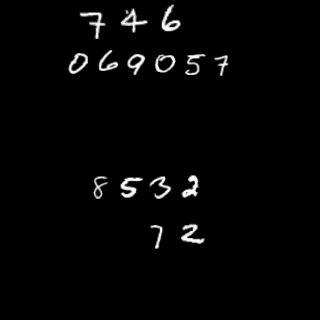 746
069057
8532
72